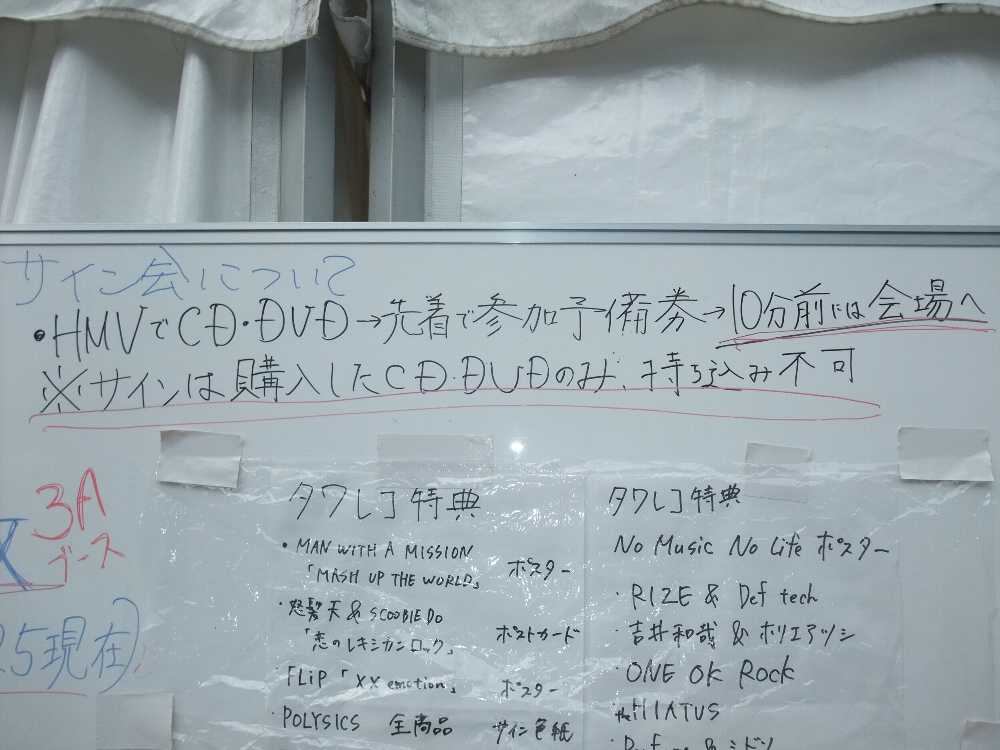 サイン会について
・HMVでCD・DVD→先着で参加予備券→10分前には会場へ
※サインは購入したCD・DVDのみ、持ち込み不可
3A
ブース
5現在
タワレコ特典
・MAN WITH A MISSION
「MASH UP THE WORLD」 ポスター
・怒髪天 & SCOOBIE DO
「恋のレキシカンロック」 ポストカード
・FLiP「XX emotion」 ポスター
POLYSICS 全商品 サイン色紙
タワレコ特典
No Music No Life ポスター
・RIZE & Def tech
・吉井和哉 & ホリエアツシ
・ONE OK ROCK
・the HIATUS